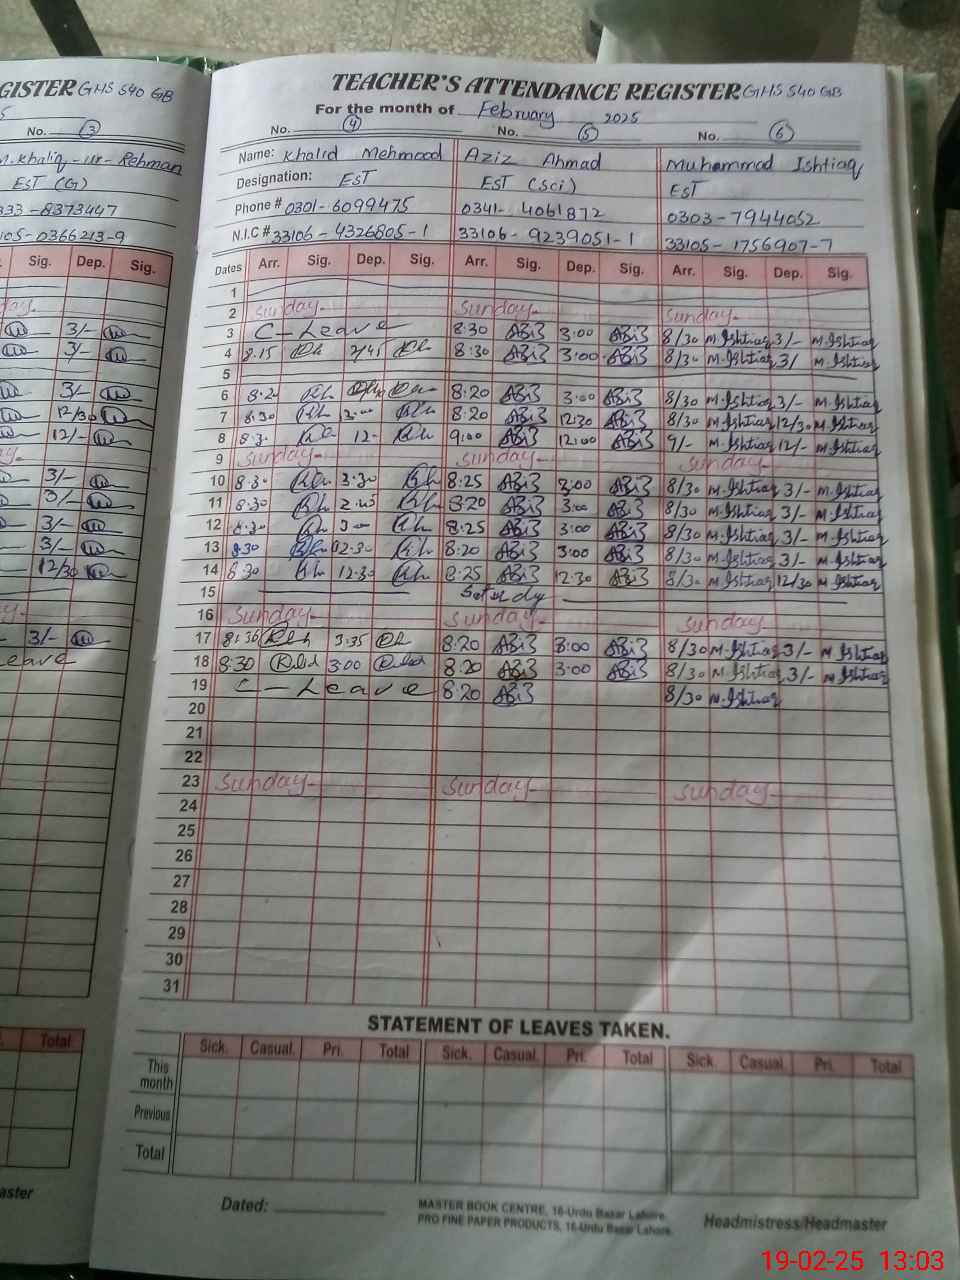 GISTER GHS 540 GB
No. 3
M. Khaliq-ur-Rehman
EST (G)
333-8373447
105-0366213-9
Sig. Dep. Sig.
3/-
3/-
3/-
12/30
12/-
3/-
3/-
3/-
3/-
12/30
3/-
Leave
Total
aster
TEACHER'S ATTENDANCE REGISTER GHS 540 GB
For the month of February 2025
No. 4 No. 5 No. 6
Name: Khalid Mehmood Aziz Ahmad Muhammad Ishtiaq
Designation: EST EST (Sci) EST
Phone # 0301-6099475 0341-4061872 0303-7944052
N.I.C # 33106-4326805-1 33106-9239051-1 33105-1756907-7
Dates Arr. Sig. Dep. Sig. Arr. Sig. Dep. Sig. Arr. Sig. Dep. Sig.
1
2 Sunday Sunday Sunday
3 C-Leave 8:30 3:00 8/30 M.Ishtiaq 3/- M.Ishtiaq
4 8.15 2/45 8:30 3:00 8/30 M.Ishtiaq 3/ M.Ishtiaq
5
6 8:20 3:00 8/30 M.Ishtiaq 3/- M.Ishtiaq
7 8:30 8:20 12:30 8/30 M.Ishtiaq 12/30 M.Ishtiaq
8 12- 9:00 12:00 9/- M.Ishtiaq 12/- M.Ishtiaq
9 Sunday Sunday Sunday
10 8.30 3:30 8:25 3:00 8/30 M.Ishtiaq 3/- M.Ishtiaq
11 8:30 2:45 8:20 3:00 8/30 M.Ishtiaq 3/- M.Ishtiaq
12 8:30 8:25 3:00 8/30 M.Ishtiaq 3/- M.Ishtiaq
13 8:30 02:30 8:20 3:00 8/30 M.Ishtiaq 3/- M.Ishtiaq
14 8:30 12:30 8:25 12:30 8/30 M.Ishtiaq 12/30 M.Ishtiaq
15 Saturday
16 Sunday Sunday Sunday
17 3:35 8:20 3:00 8/30 M.Ishtiaq 3/- M.Ishtiaq
18 8:30 3:00 8:20 3:00 8/30 M.Ishtiaq 3/- M.Ishtiaq
19 C-Leave 8:20 8/30 M.Ishtiaq
20
21
22
23 Sunday Sunday Sunday
24
25
26
27
28
29
30
31
STATEMENT OF LEAVES TAKEN.
Sick. Casual. Pri. Total Sick. Casual. Pri. Total Sick. Casual. Pri. Total
This month
Previous
Total
Dated:
MASTER BOOK CENTRE, 16-Urdu Bazar Lahore.
PRO FINE PAPER PRODUCTS, 16-Urdu Bazar Lahore.
Headmistress/Headmaster
19-02-25 13:03